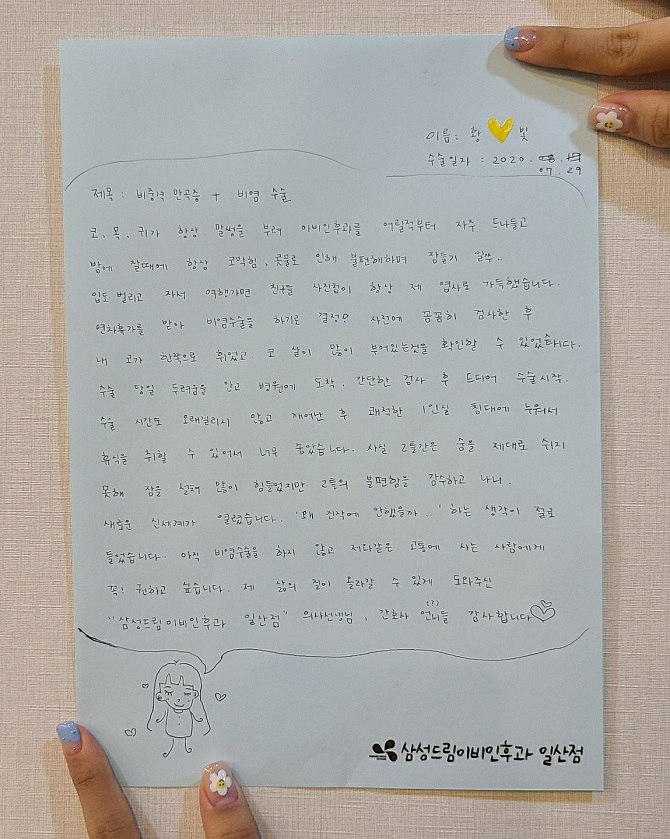 이름 : 황 💛 빛
수술일자 : 2020.
07. 29
제목 : 비중격 만곡증 + 비염 수술
코, 목, 귀가 항상 말썽을 부려 이비인후과를 어릴적부터 자주 드나들고
밤에 잘때에 항상 코막힘, 콧물로 인해 불편해하며 잠들기 일쑤..
입도 벌리고 자서 여행가면 친구들 사진첩이 항상 제 엽사로 가득했습니다.
연차휴가를 받아 비염수술을 하기로 결정? 사전에 꼼꼼히 검사한 후
내 코가 한쪽으로 휘었고, 코 살이 많이 부어있는것을 확인할 수 있었습니다.
수술 당일 두려움을 안고 병원에 도착, 간단한 검사 후 드디어 수술시작.
수술 시간도 오래걸리지 않고 깨어난 후 쾌적한 1인실 침대에 누워서
휴식을 취할 수 있어서 너무 좋았습니다. 사실 2틀간은 숨을 제대로 쉬지
못해 잠을 설쳐 많이 힘들었지만 2틀의 불편함을 감수하고 나니,
새로운 신세계가 열렸습니다. '왜 진작에 안했을까..' 하는 생각이 절로
들었습니다. 아직 비염수술을 하지 않고 저와같은 고통에 사는 사람에게
꼭! 권하고 싶습니다. 제 삶의 질이 올라갈 수 있게 도와주신
"삼성드림이비인후과 일산점" 의사선생님, 간호사 언니들(?) 감사합니다
삼성드림이비인후과 일산점